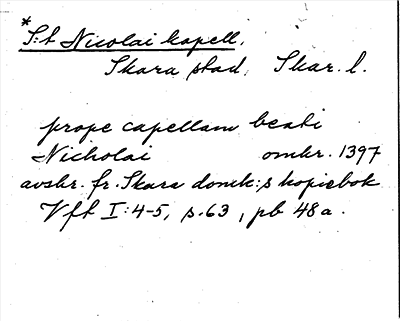 *
S:t Nicolai kapell,
Skara stad, Skar. l.
prope capellam beati
Nicholai omkr. 1397
avskr. fr. Skara domk:s kopiebok
Vft I:4-5, s.63, pb 48a.